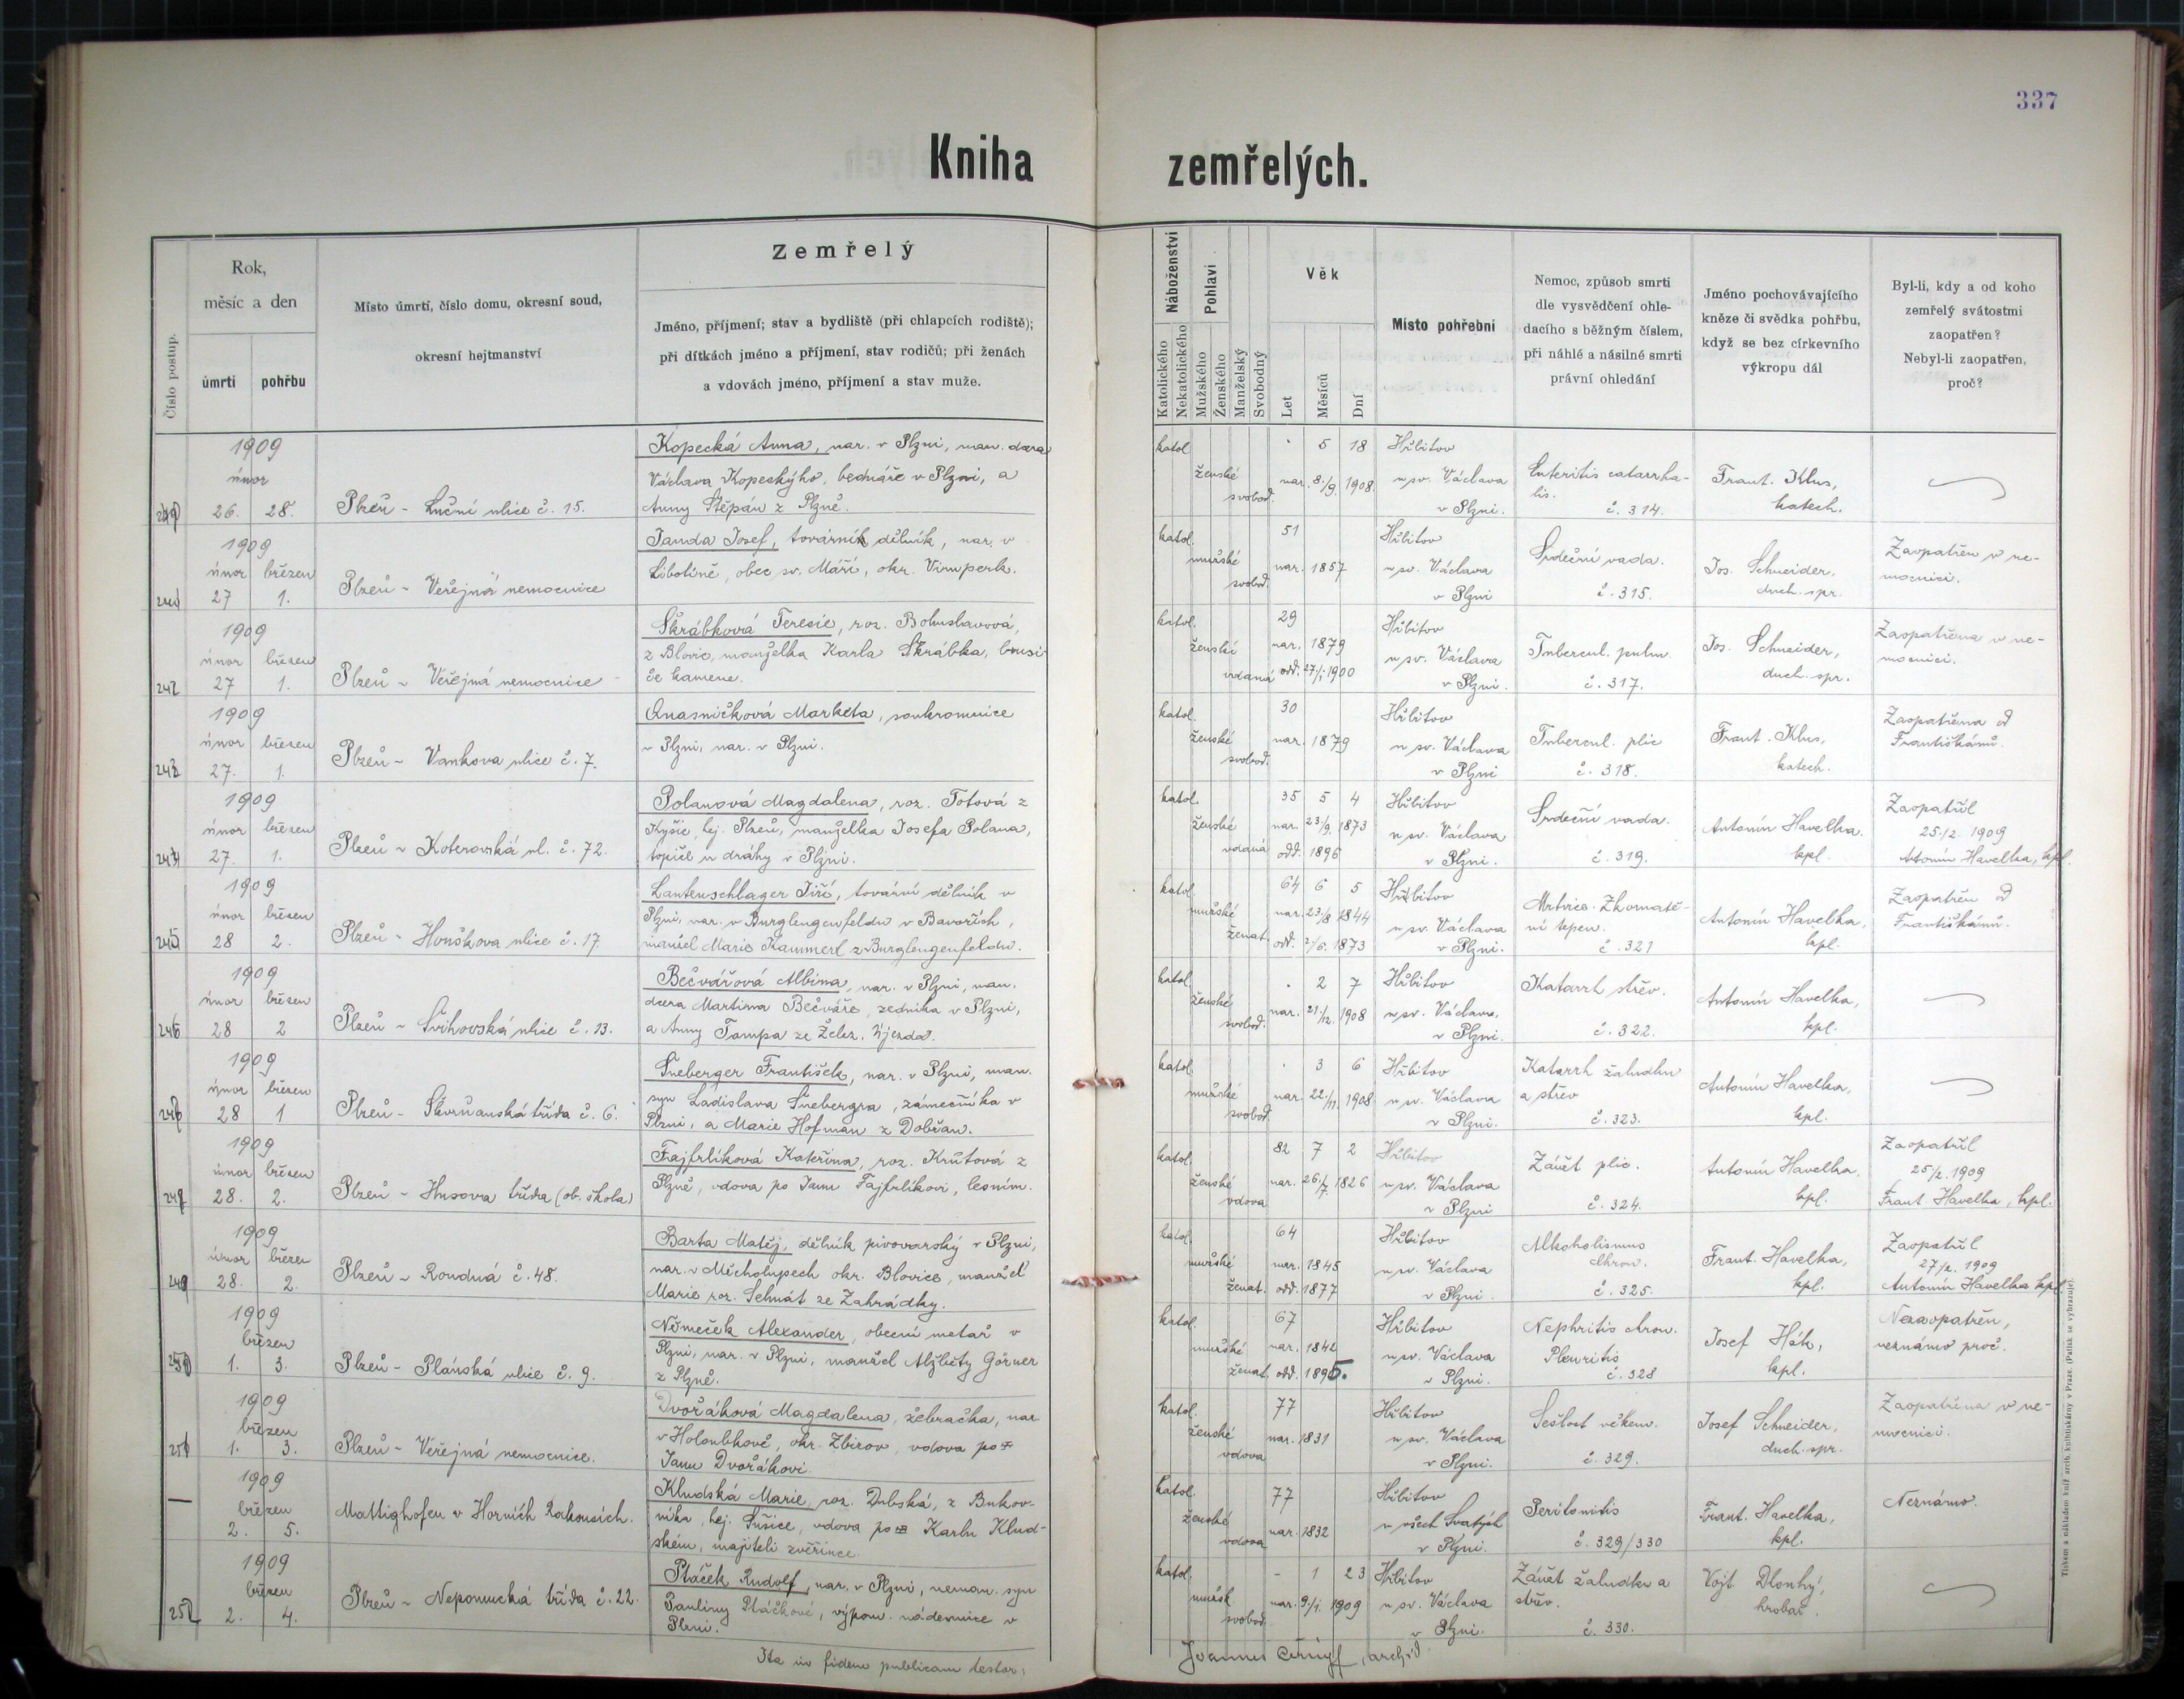 337
Kniha zemřelých.
Číslo postup.
Rok,
měsíc a den
úmrtí
pohřbu
Místo úmrtí, číslo domu, okresní soud,
okresní hejtmanství
Zemřelý
Jméno, příjmení; stav a bydliště (při chlapcích rodiště);
při dítkách jméno a příjmení, stav rodičů; při ženách
a vdovách jméno, příjmení a stav muže.
Náboženství
Katolického
Nekatolického
Pohlaví
Mužského
Ženského
Manželský
Svobodný
Věk
Let
Měsíců
Dní
Místo pohřební
Nemoc, způsob smrti
dle vysvědčení ohle-
dacího s běžným číslem,
při náhlé a násilné smrti
právní ohledání
Jméno pochovávajícího
kněze či svědka pohřbu,
když se bez církevního
výkropu dál
Byl-li, kdy a od koho
zemřelý svátostmi
zaopatřen?
Nebyl-li zaopatřen,
proč?
1909
únor
26. 28.
Plzeň - Luční ulice č. 15.
Kopecká Anna, nar. v Plzni, man. dcera
Václava Kopeckýho, bednáře v Plzni, a
Anny Štěpán z Plzně.
katol.
ženské
svobod.
5 18
nar. 8./9. 1908.
Hřbitov
u sv. Václava
v Plzni.
Enteritis catarrha-
lis.
č. 314.
Frant. Klus,
katech.
1909
únor březen
27 1.
Plzeň - Veřejná nemocnice
Janda Josef, továrník dělník, nar. v
Libotině, obec sv. Máří, okr. Vimperk.
katol.
mužské
svobod.
51
nar. 1857
Hřbitov
u sv. Václava
v Plzni
Srdeční vada.
č. 315.
Jos. Schneider,
duch. spr.
Zaopatřen v ne-
mocnici.
242
1909
únor březen
27 1.
Plzeň - Veřejná nemocnice
Škrábková Teresie, roz. Bohuslavová,
z Blovic, manželka Karla Škrábka, brusi-
če kamene.
katol.
ženské
vdaná
29
nar. 1879
odd. 27/1 1900
Hřbitov
u sv. Václava
v Plzni.
Tubercul. pulm.
č. 317.
Jos. Schneider,
duch. spr.
Zaopatřena v ne-
mocnici.
243
1909
únor březen
27. 1.
Plzeň - Vankova ulice č. 7.
Markéta, soukromnice
v Plzni, nar. v Plzni.
katol.
ženské
svobod.
30
nar. 1879
Hřbitov
u sv. Václava
v Plzni
Tubercul. plic
č. 318.
Frant. Klus,
katech.
Zaopatřena od
Františkánů.
1909
únor březen
27. 1.
Plzeň - Koterovská ul. č. 72.
Polanová Magdalena, roz. Totová z
Kyšic, hej. Plzeň, manželka Josefa Polana,
topiče u dráhy v Plzni.
katol.
ženské
vdaná
35 5 4
nar. 23/9. 1873
odd. 1896
Hřbitov
u sv. Václava
v Plzni.
Srdeční vada.
č. 319.
Antonín Havelka.
kpl.
Zaopatřil
25./2. 1909
Antonín Havelka, kpl.
245
1909
únor březen
28 2.
Plzeň - Houškova ulice č. 17
Lautenschlager Jiří, tovární dělník v
Plzni, nar. v Burglengenfeldu v Bavořích,
manžel Marie Kammerl z Burglengenfeldu.
katol.
mužské
ženat.
64 6 5
nar. 23/8 1844
odd. 2/6. 1873
Hřbitov
u sv. Václava
v Plzni.
Mrtvice. Zkornatě-
ní tepen.
č. 321
Antonín Havelka,
kpl.
Zaopatřen od
Františkánů.
246
1909
únor březen
28 2
Plzeň - Švihovská ulice č. 13.
Bečvářová Albina, nar. v Plzni, man.
dcera Martina Bečváře, zedníka v Plzni,
a Anny Tampa ze Želez. Újezda.
katol.
ženské
svobod.
2 7
nar. 21./12. 1908
Hřbitov
u sv. Václava,
v Plzni.
Katarrh střev.
č. 322.
Antonín Havelka,
kpl.
1909
únor březen
28 1
Plzeň - Skvrňanská třída č. 6.
Šneberger František, nar. v Plzni, man.
syn Ladislava Šnebergra, zámečníka v
Plzni, a Marie Hofman z Dobřan.
katol.
mužské
svobod.
3 6
nar. 22./11. 1908
Hřbitov
u sv. Václava
v Plzni.
Katarrh žaludku
a střev
č. 323.
Antonín Havelka,
kpl.
1909
únor březen
28. 2.
Plzeň - Husova třída (ob. škola)
Fajfrlíková Kateřina, roz. Krutová z
Plzně, vdova po Janu Fajfrlíkovi, lesním.
katol.
ženské
vdova
82 7 2
nar. 26./7. 1826
Hřbitov
u sv. Václava
v Plzni
Zánět plic.
č. 324.
Antonín Havelka.
kpl.
Zaopatřil
25/2. 1909
Frant. Havelka, kpl.
249
1909
únor březen
28. 2.
Plzeň - Roudná č. 48.
Barta Matěj, dělník pivovarský v Plzni,
nar. v Měcholupech okr. Blovice, manžel
Marie roz. Sehnát ze Zahrádky.
katol.
mužské
ženat.
64
nar. 1845
odd. 1877
Hřbitov
u sv. Václava
v Plzni.
Alkoholismus
chron.
č. 325.
Frant. Havelka,
kpl.
Zaopatřil
27/2. 1909
Antonín Havelka kpl.
250
1909
březen
1. 3.
Plzeň - Plánská ulice č. 9.
Němeček Alexander, obecní metař v
Plzni, nar. v Plzni, manžel Alžběty Görner
z Plzně.
katol.
mužské
ženat.
67
nar. 1842
odd. 1895.
Hřbitov
u sv. Václava
v Plzni.
Nephritis chron.
Pleuritis
č. 328
Josef Hák,
kpl.
Nezaopatřen,
neznámo proč.
251
1909
březen
1. 3.
Plzeň - Veřejná nemocnice.
Dvořáková Magdalena, žebračka, nar.
v Holoubkově, okr. Zbirov, vdova po
Janu Dvořákovi.
katol.
ženské
vdova
77
nar. 1831
Hřbitov
u sv. Václava
v Plzni.
Sešlost věkem.
č. 329.
Josef Schneider,
duch. spr.
Zaopatřena v ne-
mocnici.
—
1909
březen
2. 5.
Mattighofen v Horních Rakousích.
Kludská Marie, roz. Dubská, z Bukov-
níka, hej. Sušice, vdova po Karlu Klud-
ském, majiteli zvěřince.
katol.
ženské
vdova
77
nar. 1832
Hřbitov
u všech Svatých
v Plzni.
Peritonitis
č. 329/330
Frant. Havelka,
kpl.
Neznámo.
252
1909
březen
2. 4.
Plzeň - Nepomucká třída č. 22.
Ptáček Rudolf, nar. v Plzni, neman. syn
Pauliny Ptáčkové, výpom. nádennice v
Plzni.
katol.
mužsk.
svobod.
- 1 23
nar. 9./1. 1909
Hřbitov
u sv. Václava
v Plzni.
Zánět žaludku a
střev.
č. 330.
Vojt. Dlouhý,
hrobař.
Ita in fidem publicam testor:
Joannes Černý, archid.